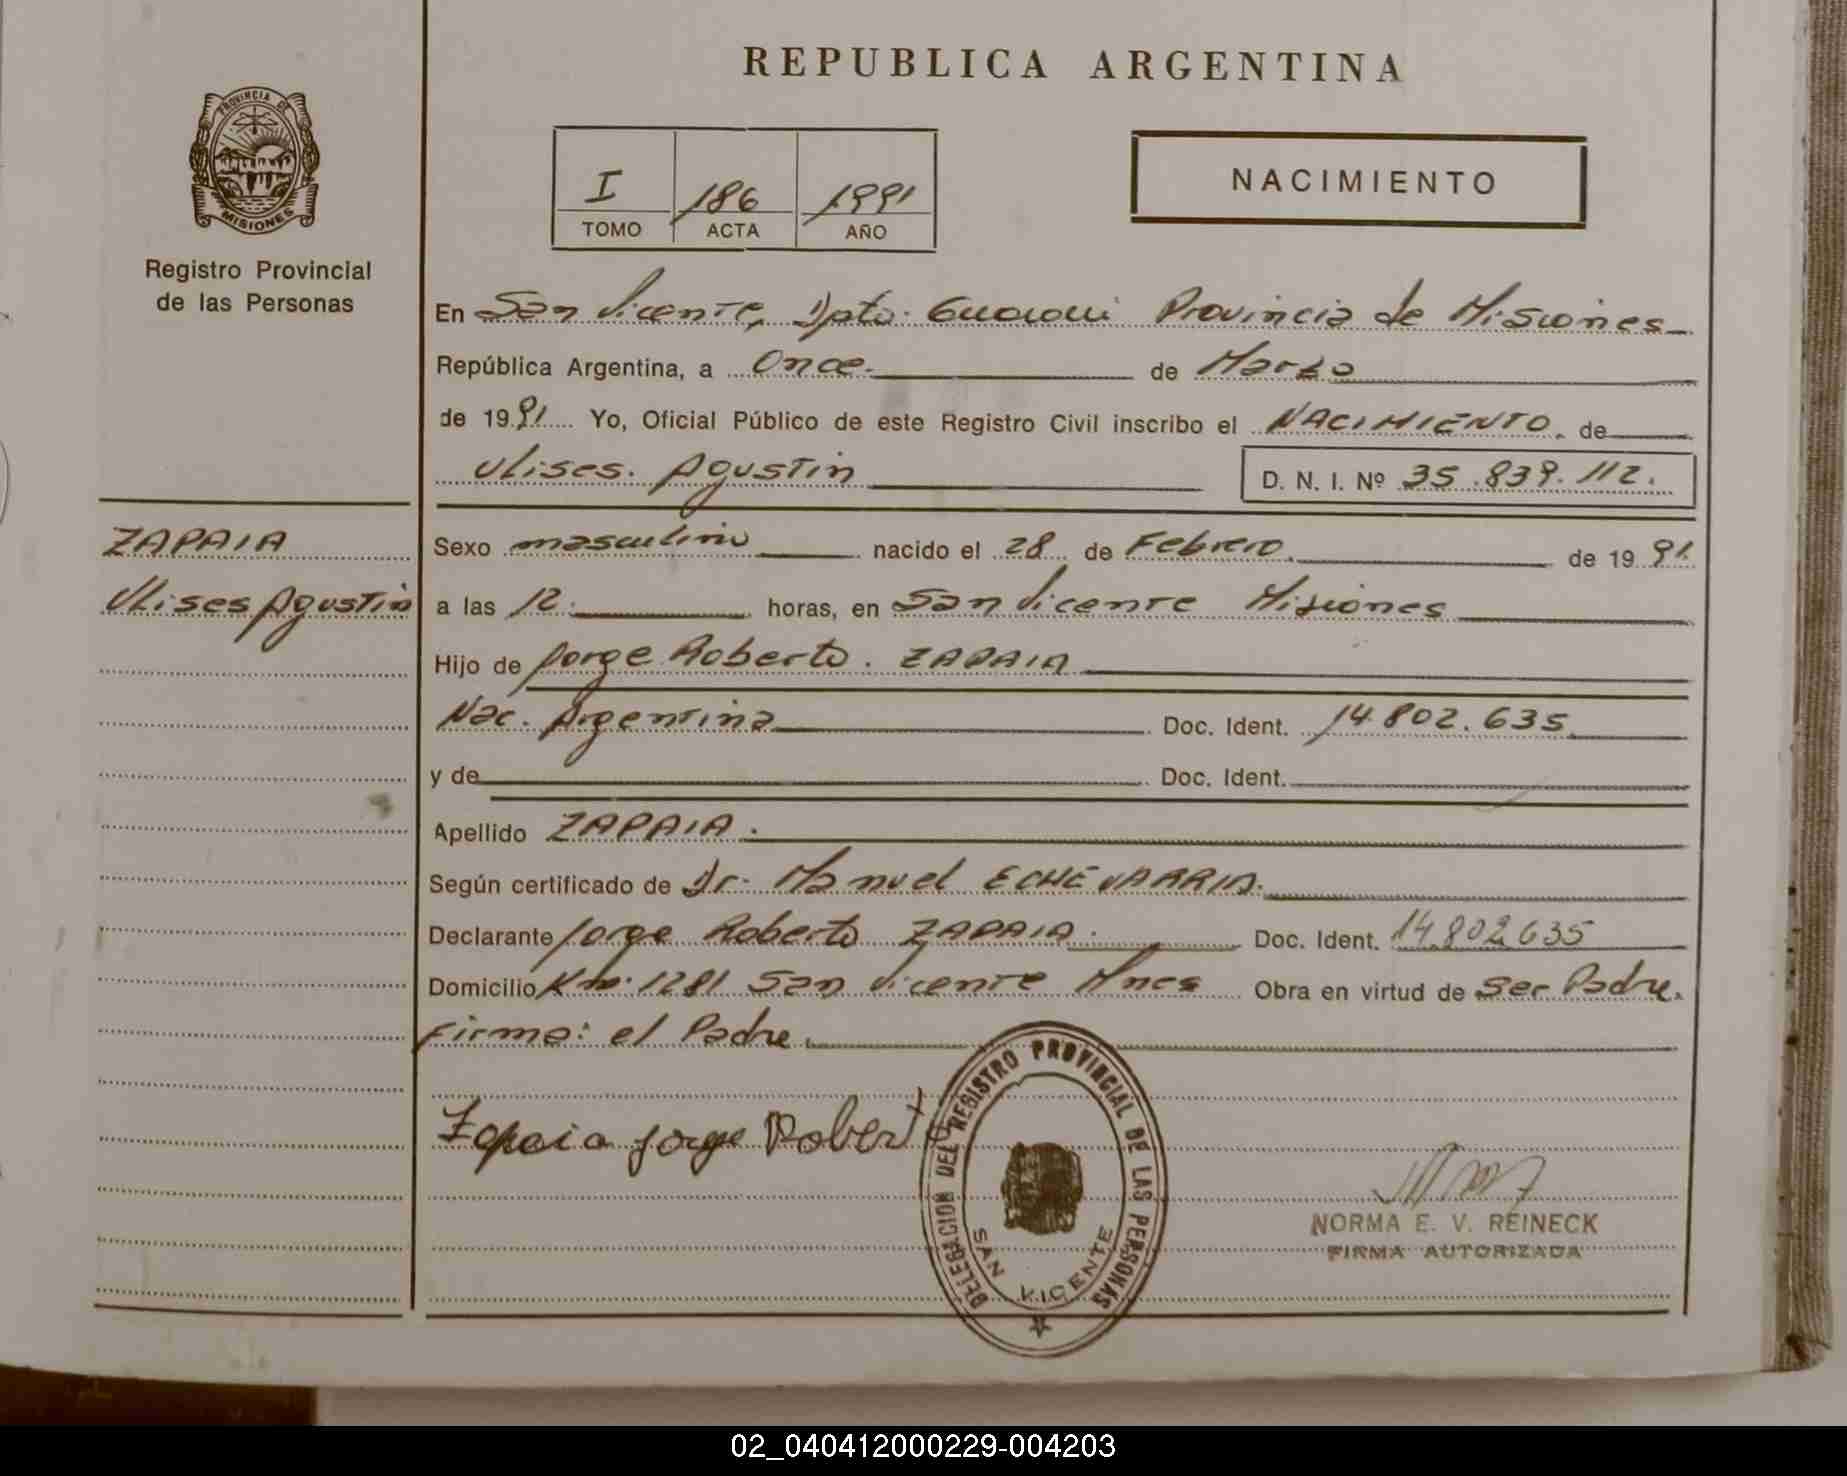 REPUBLICA ARGENTINA
PROVINCIA DE
MISIONES
Registro Provincial
de las Personas
I 186 1991
TOMO ACTA AÑO
NACIMIENTO
En San Vicente, Dpto. Guarani Provincia de Misiones
República Argentina, a Once. de Marzo
de 1991 Yo, Oficial Público de este Registro Civil inscribo el NACIMIENTO. de
Ulises. Agustin D. N. I. Nº 35.839.112.
ZAPAIA
Ulises Agustin
Sexo masculino nacido el 28 de Febrero. de 1991.
a las 12. horas, en San Vicente Misiones
Hijo de Jorge Roberto. ZAPAIA
Nac. Argentina Doc. Ident. 14.802.635
y de Doc. Ident.
Apellido ZAPAIA.
Según certificado de Dr. Manuel ECHEVARRIA.
Declarante Jorge Roberto ZAPAIA. Doc. Ident. 14.802.635
Domicilio Km. 1281 San Vicente Mnes Obra en virtud de Ser Padre.
Firma: el Padre.
Zapaia Jorge Roberto
DELEGACION DEL REGISTRO PROVINCIAL DE LAS PERSONAS
SAN VICENTE
NORMA E. V. REINECK
FIRMA AUTORIZADA
02_040412000229-004203